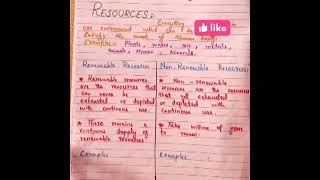 RESOURCES:-
like
Everything
our environment which can be
satisfy the need of Human being.
Examples:- Plants, water, air, metals,
animals, Human, Minerals.
Renewable Resources
Non-Renewable Resources
* Renewable resources
are the resources that
can never be
exhausted or depleted
with continuous use.
* Non-renewable
resources are the resources
that get exhausted
or depleted with
continuous use.
* There remains a
continous supply of
renewable resources
* Take millions of years to
Examples
Examples